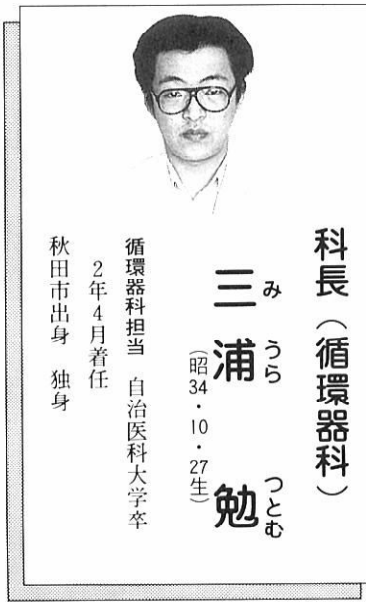 科長（循環器科）
みうら　つとむ
三浦　勉
（昭34・10・27生）
循環器科担当　自治医科大学卒
2年4月着任
秋田市出身　独身